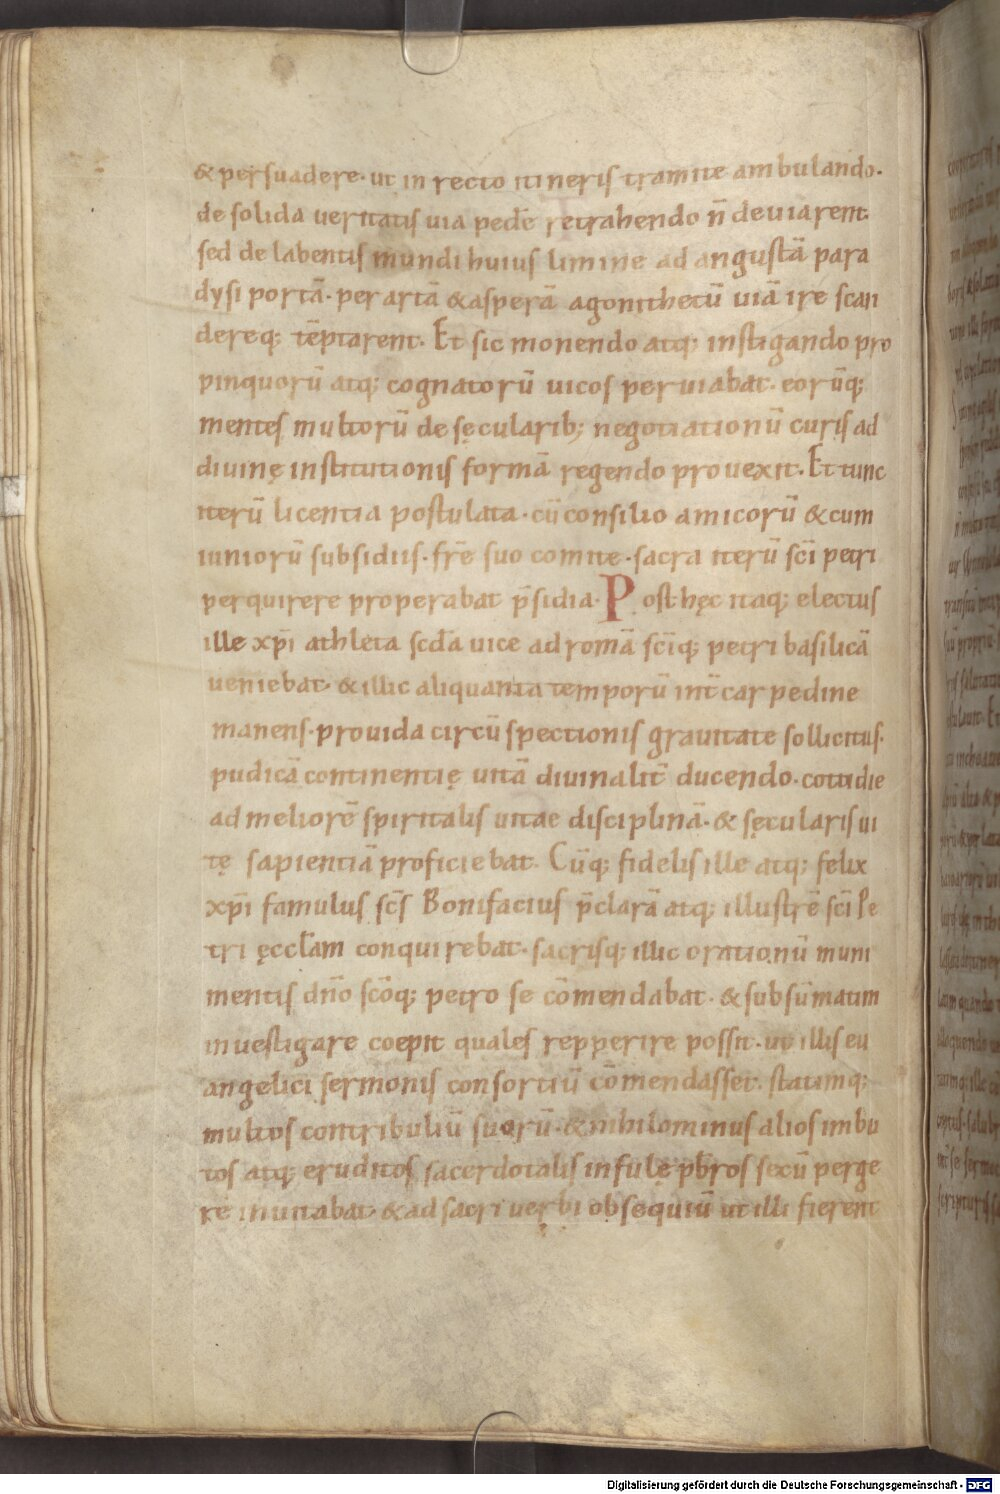 & persuadere· ut in recto itineris tramite ambulando·
de solida ueritatis uia pedē retrahendo n̄ deuiarent.
sed de labentis mundi huius limine ad angustā para
dysi portā· per artā & asperā agonithetū uiā ire scan
dereq; tēptarent. Et sic monendo atq; instigando pro
pinquorū atq; cognatorū uicos peruiabat· eorūq;
mentes multorū de sęcularib; negotiationū curis ad
diuinę institutionis formā regendo prouexit. Et tunc
iterū licentia postulata· cū consilio amicorū & cum
iuniorū subsidiis· fr̄e suo comite· sacra iterū sc̄i petri
perquirere properabat p̄sidia· Post hęc itaq; electus
ille xp̄i athleta scd̄a uice ad romā sc̄iq; petri basilicā
ueniebat· & illic aliquanta temporū int̄carpedine
manens· prouida circūspectionis grauitate sollicitus·
pudicā continentię uitā diuinalit̄ ducendo· cottidie
ad meliorē spiritalis uitae disciplinā· & sęcularis ui
tę sapientiā proficiebat. Cūq; fidelis ille atq; felix
xp̄i famulus sc̄s Bonifacius p̄clarā atq; illustrē sc̄i Pe
tri ęccl̄am conquirebat· sacrisq; illic orationū muni
mentis dn̄o sc̄oq; petro se cōmendabat· & subsūmatim
inuestigare coepit quales repperire possit· ut illis eu
angelici sermonis consortiū cōmendasset. statimq;
multos contribuliū suorū· & nihilominus alios imbu
tos atq; eruditos sacerdotalis infulę pb̄ros secū perge
re inuitabat· & ad sacri uerbi obsequiū ut illi fierent
Digitalisierung gefördert durch die Deutsche Forschungsgemeinschaft - DFG